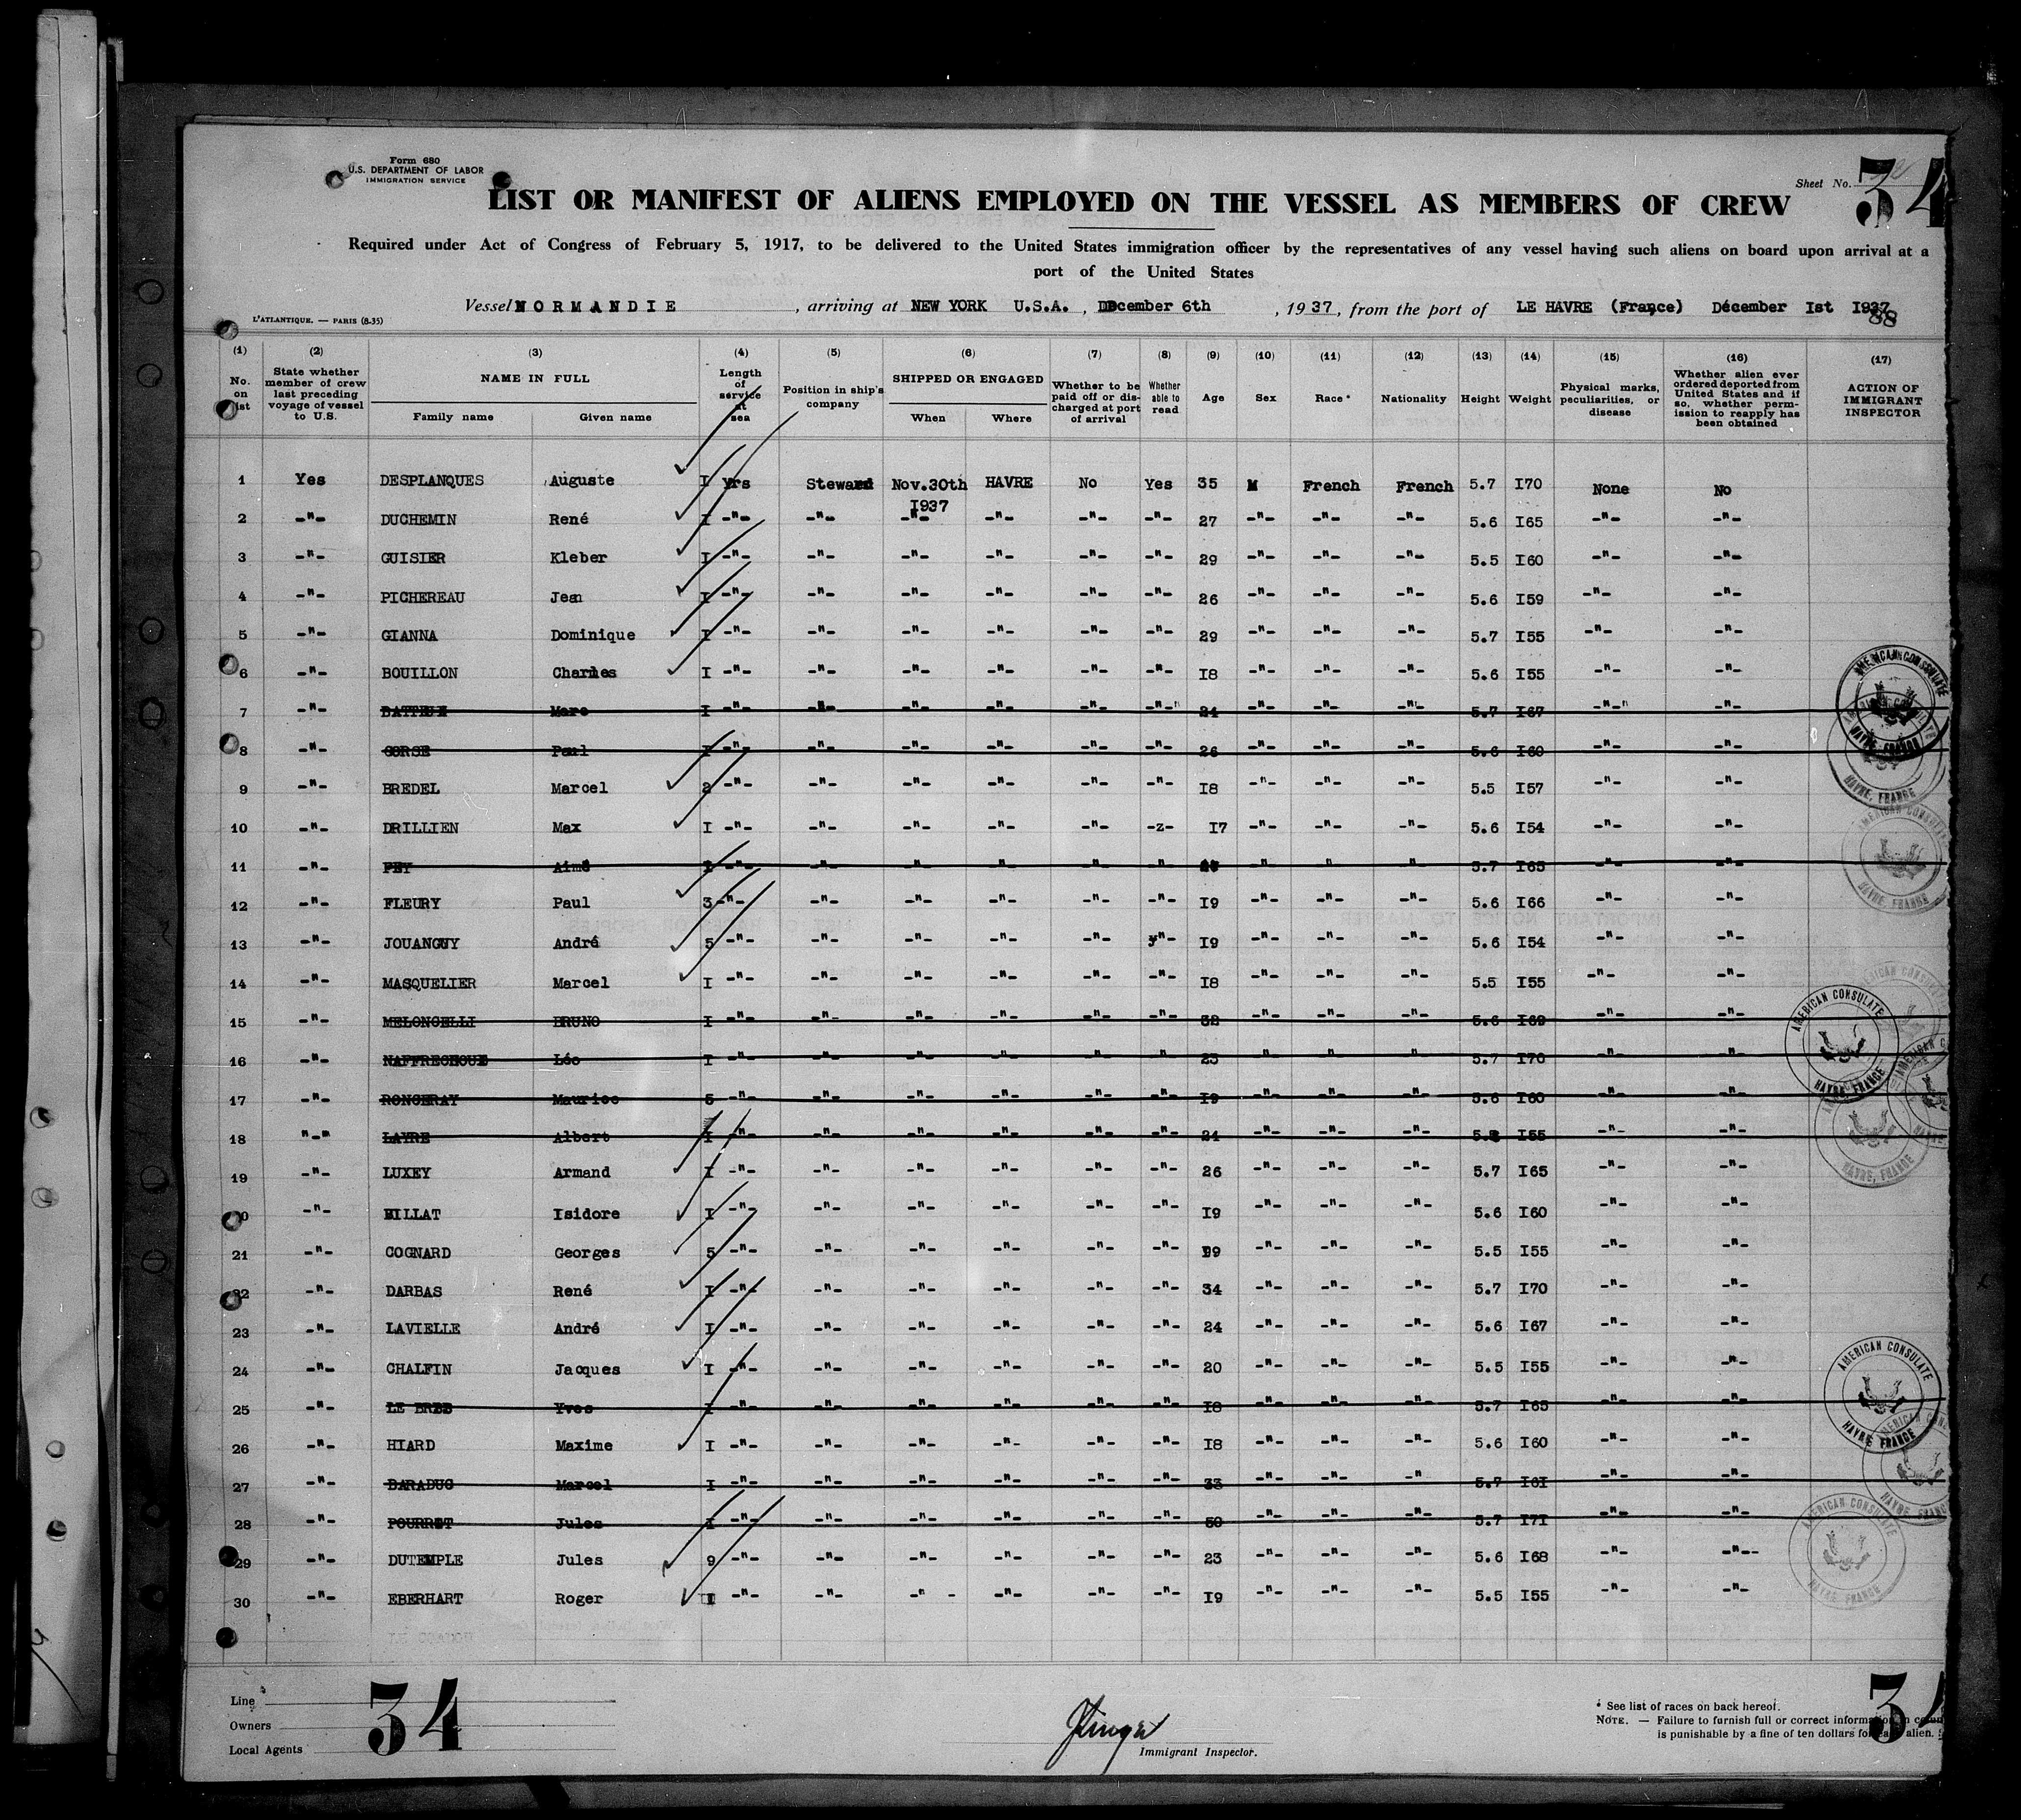 Form 680
U.S. DEPARTMENT OF LABOR
IMMIGRATION SERVICE
Sheet No. 34
LIST OR MANIFEST OF ALIENS EMPLOYED ON THE VESSEL AS MEMBERS OF CREW
Required under Act of Congress of February 5, 1917, to be delivered to the United States immigration officer by the representatives of any vessel having such aliens on board upon arrival at a
port of the United States
Vessel NORMANDIE , arriving at NEW YORK U.S.A. , December 6th , 1937, from the port of LE HAVRE (France) Décember Ist I937
88
L'ATLANTIQUE. — PARIS (8-35)
(1) (2) (3) (4) (5) (6) (7) (8) (9) (10) (11) (12) (13) (14) (15) (16) (17)
No. on list State whether member of crew last preceding voyage of vessel to U.S. NAME IN FULL Family name Given name Length of service at sea Position in ship's company SHIPPED OR ENGAGED When Where Whether to be paid off or discharged at port of arrival Whether able to read Age Sex Race * Nationality Height Weight Physical marks, peculiarities, or disease Whether alien ever ordered deported from United States and if so, whether permission to reapply has been obtained ACTION OF IMMIGRANT INSPECTOR
1 Yes DESPLANQUES Auguste I yrs Steward Nov.30th I937 HAVRE No Yes 35 M French French 5.7 I70 None No
2 -"- DUCHEMIN René I -"- -"- -"- -"- -"- -"- 27 -"- -"- -"- 5.6 I65 -"- -"-
3 -"- GUISIER Kleber I -"- -"- -"- -"- -"- -"- 29 -"- -"- -"- 5.5 I60 -"- -"-
4 -"- PICHEREAU Jean I -"- -"- -"- -"- -"- -"- 26 -"- -"- -"- 5.6 I59 -"- -"-
5 -"- GIANNA Dominique I -"- -"- -"- -"- -"- -"- 29 -"- -"- -"- 5.7 I55 -"- -"-
6 -"- BOUILLON Charles I -"- -"- -"- -"- -"- -"- I8 -"- -"- -"- 5.6 I55 -"- -"-
7 -"- Marc I -"- -"- -"- -"- -"- -"- 24 -"- -"- -"- 5.7 I67 -"- -"-
8 -"- CORSE Paul I -"- -"- -"- -"- -"- -"- 26 -"- -"- -"- 5.6 I60 -"- -"-
9 -"- BREDEL Marcel 2 -"- -"- -"- -"- -"- -"- I8 -"- -"- -"- 5.5 I57 -"- -"-
10 -"- DRILLIEN Max I -"- -"- -"- -"- -"- -z- I7 -"- -"- -"- 5.6 I54 -"- -"-
11 -"- FEY Aimé I -"- -"- -"- -"- -"- -"- -"- -"- -"- 5.7 I65 -"- -"-
12 -"- FLEURY Paul 3 -"- -"- -"- -"- -"- -"- I9 -"- -"- -"- 5.6 I66 -"- -"-
13 -"- JOUANGUY André 5 -"- -"- -"- -"- -"- y"- I9 -"- -"- -"- 5.6 I54 -"- -"-
14 -"- MASQUELIER Marcel I -"- -"- -"- -"- -"- -"- I8 -"- -"- -"- 5.5 I55 -"- -"-
15 -"- MELONCELLI BRUNO I -"- -"- -"- -"- -"- -"- 32 -"- -"- -"- 5.6 I69 -"- -"-
16 -"- NAFFRECHOUX Léo I -"- -"- -"- -"- -"- -"- 23 -"- -"- -"- 5.7 I70 -"- -"-
17 -"- RONCERAY Maurice 5 -"- -"- -"- -"- -"- -"- I9 -"- -"- -"- 5.6 I60 -"- -"-
18 "-" LAYRE Albert I -"- -"- -"- -"- -"- -"- 24 -"- -"- -"- I55 -"- -"-
19 -"- LUXEY Armand I -"- -"- -"- -"- -"- -"- 26 -"- -"- -"- 5.7 I65 -"- -"-
20 -"- BILLAT Isidore I -"- -"- -"- -"- -"- -"- I9 -"- -"- -"- 5.6 I60 -"- -"-
21 -"- COGNARD Georges 5 -"- -"- -"- -"- -"- -"- -"- -"- -"- 5.5 I55 -"- -"-
22 -"- DARBAS René I -"- -"- -"- -"- -"- -"- 34 -"- -"- -"- 5.7 I70 -"- -"-
23 -"- LAVIELLE André I -"- -"- -"- -"- -"- -"- 24 -"- -"- -"- 5.6 I67 -"- -"-
24 -"- CHALFIN Jacques I -"- -"- -"- -"- -"- -"- 20 -"- -"- -"- 5.5 I55 -"- -"-
25 -"- LE Yves I -"- -"- -"- -"- -"- -"- I8 -"- -"- -"- 5.7 I65 -"- -"-
26 -"- HIARD Maxime I -"- -"- -"- -"- -"- -"- I8 -"- -"- -"- 5.6 I60 -"- -"-
27 -"- BARADUC Marcel I -"- -"- -"- -"- -"- -"- 33 -"- -"- -"- 5.7 I6I -"- -"-
28 -"- POURRET Jules I -"- -"- -"- -"- -"- -"- 50 -"- -"- -"- 5.7 I7I -"- -"-
29 -"- DUTEMPLE Jules 9 -"- -"- -"- -"- -"- -"- 23 -"- -"- -"- 5.6 I68 -"- -"--
30 -"- EBERHART Roger I -"- -"- -" - -"- -"- -"- I9 -"- -"- -"- 5.5 I55 -"- -"-
AMERICAN CONSULATE
HAVRE, FRANCE
AMERICAN CONSULATE
HAVRE, FRANCE
AMERICAN CONSULATE
HAVRE, FRANCE
AMERICAN CONSULATE
HAVRE, FRANCE
Line
Owners
Local Agents
34
Immigrant Inspector.
* See list of races on back hereof.
NOTE. — Failure to furnish full or correct information in
is punishable by a fine of ten dollars for each alien.
34